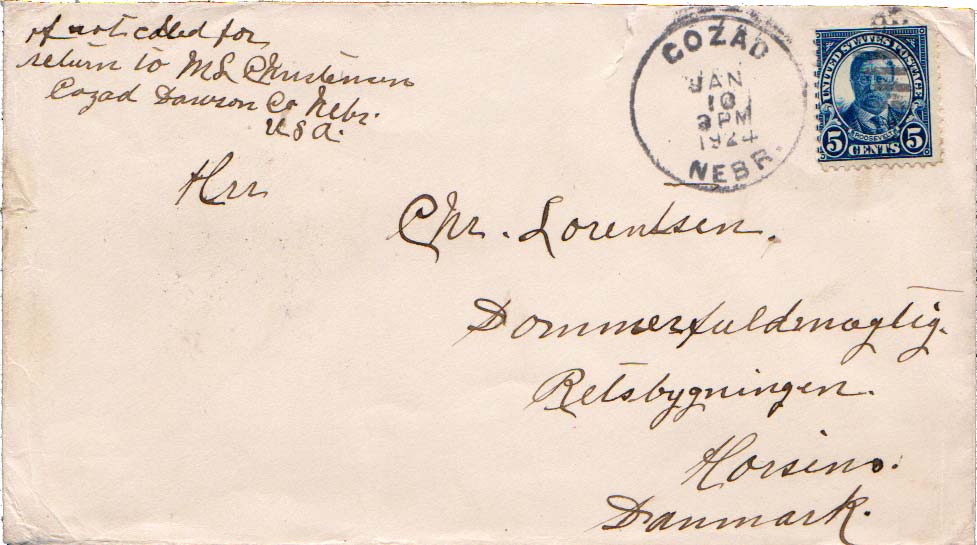 If not called for
return to M L Christensen
Cozad Dawson Co Nebr.
USA.
COZAD
JAN
10
3 PM
1924
NEBR.
UNITED STATES POSTAGE
ROOSEVELT
5 CENTS 5
Hrr
Chr. Lorentsen.
Dommerfuldmægtig.
Retsbygningen.
Horsens.
Danmark.